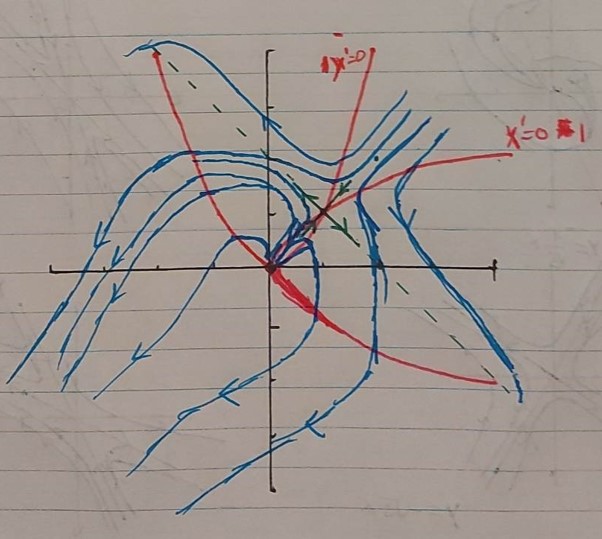 y'=0
x'=0